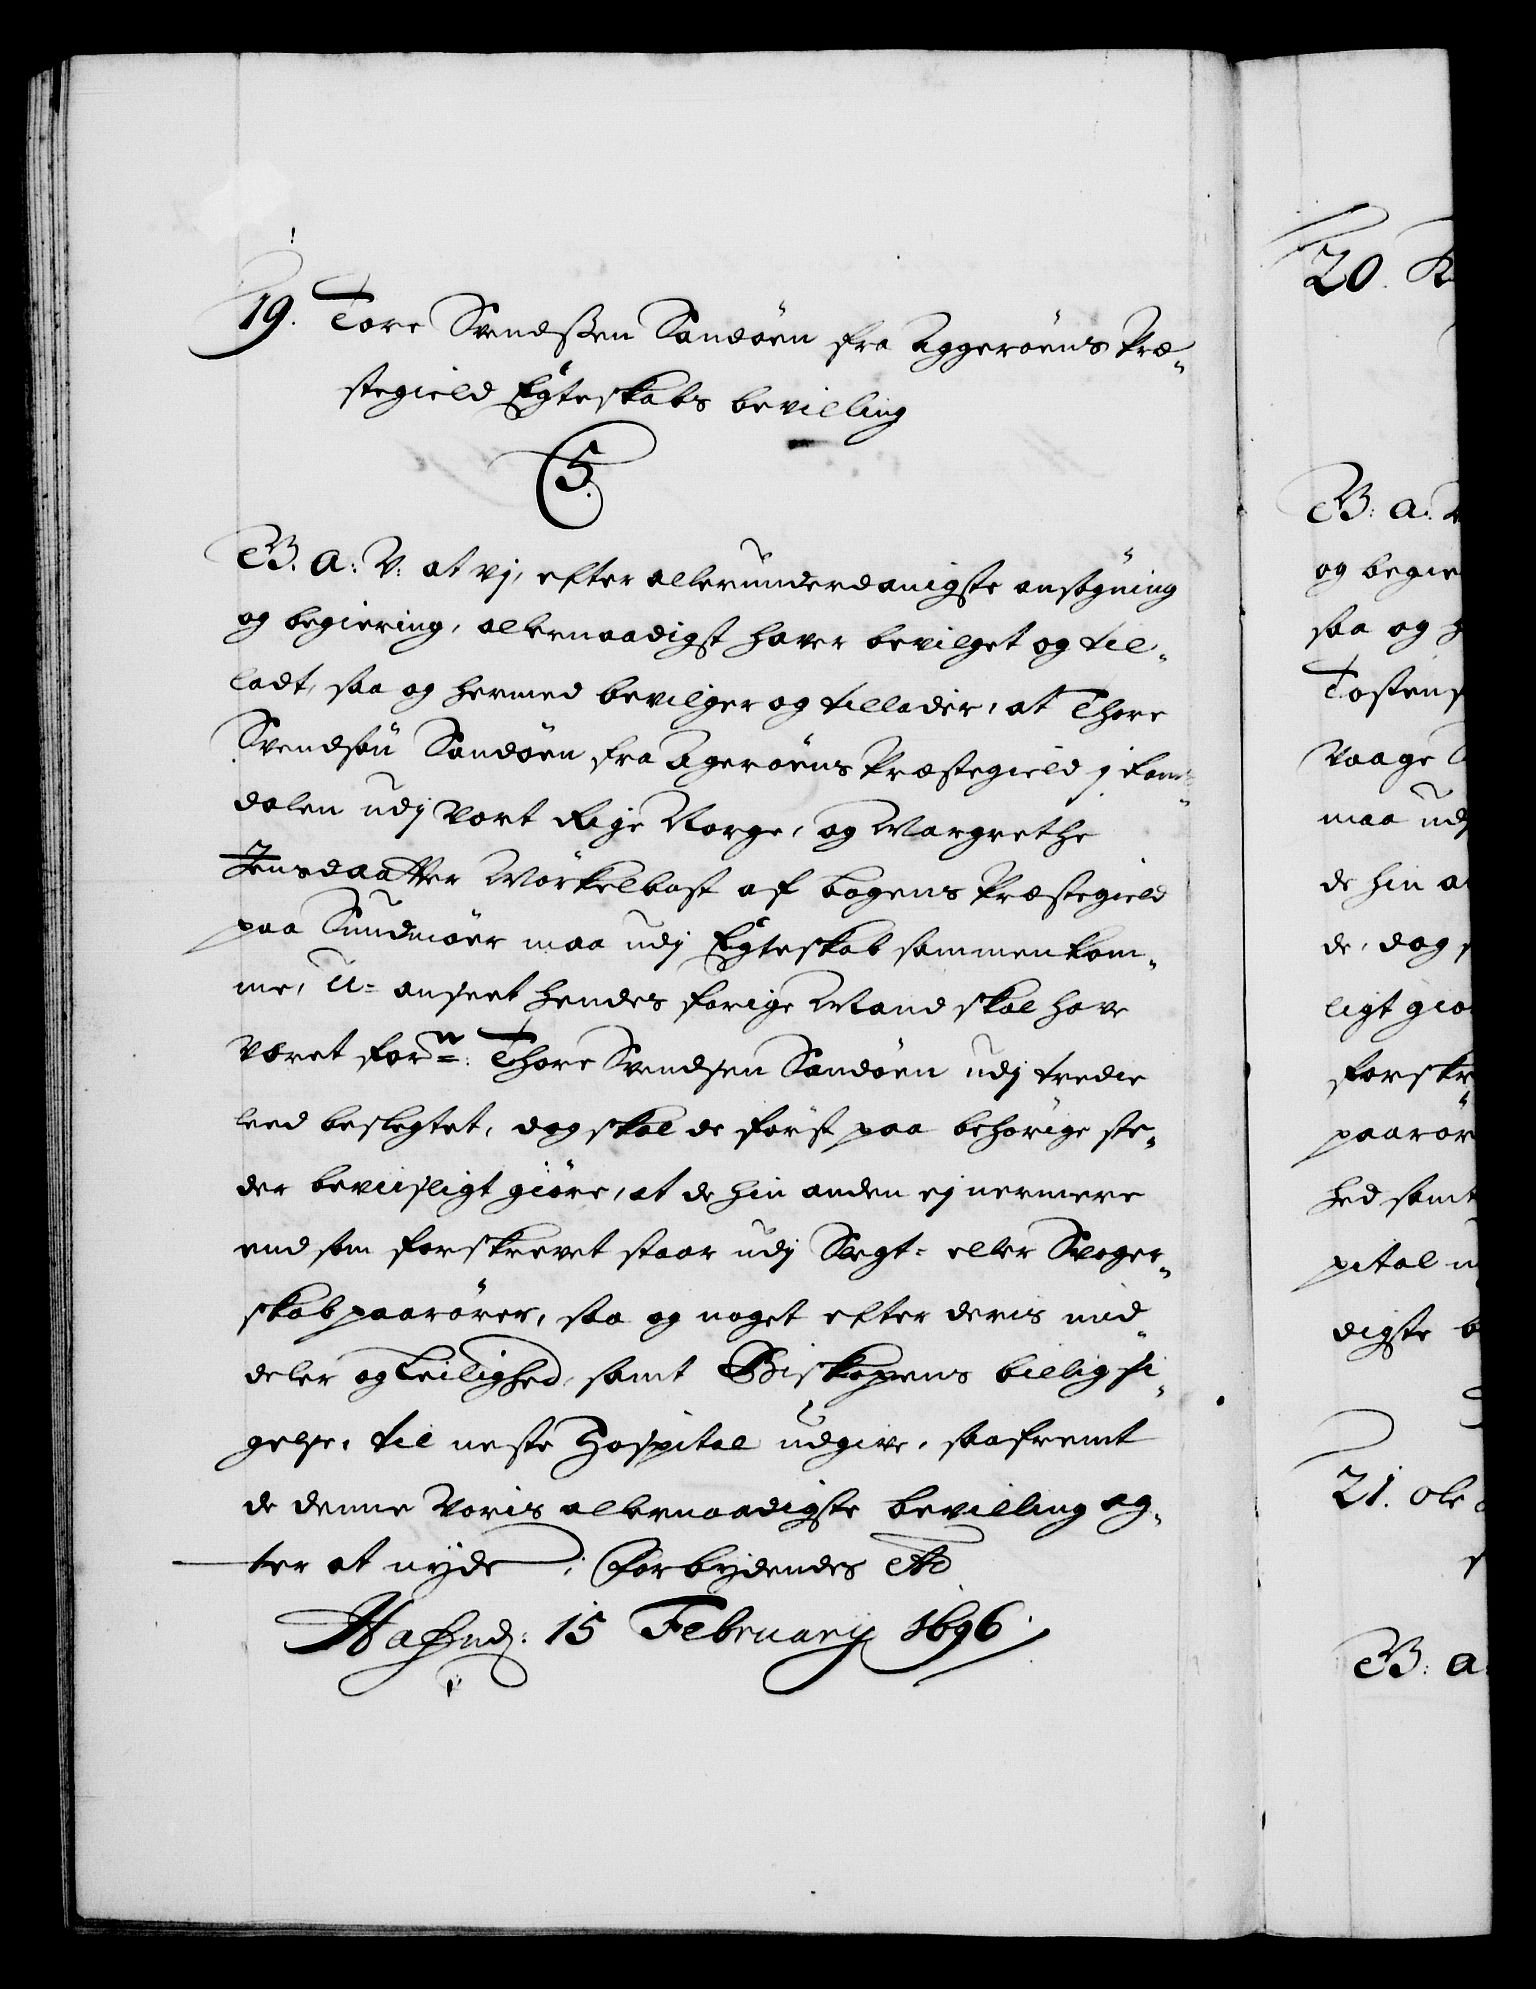 19. Tore Svendssen Sandöen fra Aggeröens Præ-
stegield Egteskabs bevilling
5.
B. A: V: at vj, efter allerunderdanigste ansögning
og begiering, allernaadigst haver bevilget og til-
ladt, saa og hermed bevilger og tillader, at Thore
Svendsön Sandöen fra Ageröens Præstegield j
dalen udj vort Rige Norge, og Margrethe
Jensdaatter Mörkelbost af Bogens Præstegield
paa Sundmöer maa udj Egteskab sammenkom-
me, U- anseet hendes forige Mand skal have
været forn: Thore Svendsen Sandöen udj tredie
leed beslegtet, dog skal de först paa behörige ste-
der beviisligt giöre, at de hin anden ej nermere
end som forskrevet staar udj Slegt- eller Svoger-
skab paarörer, saa og noget efter deris mid-
deler og Leilighed, samt Biskopens billig si-
gelse, til neste Hospital udgive, saafremt
de denne voris allernaadigste bevilling ag-
ter at nyde; Forbydendes
Hafnd: 15 February 1696.
20.
B: A.
og begie
saa og
Tosten
Vaage
maa udj
de hin a
de, dog
ligt giö
forskr
paarör
hed samt
pital
digste b
21. Ole
B: A: